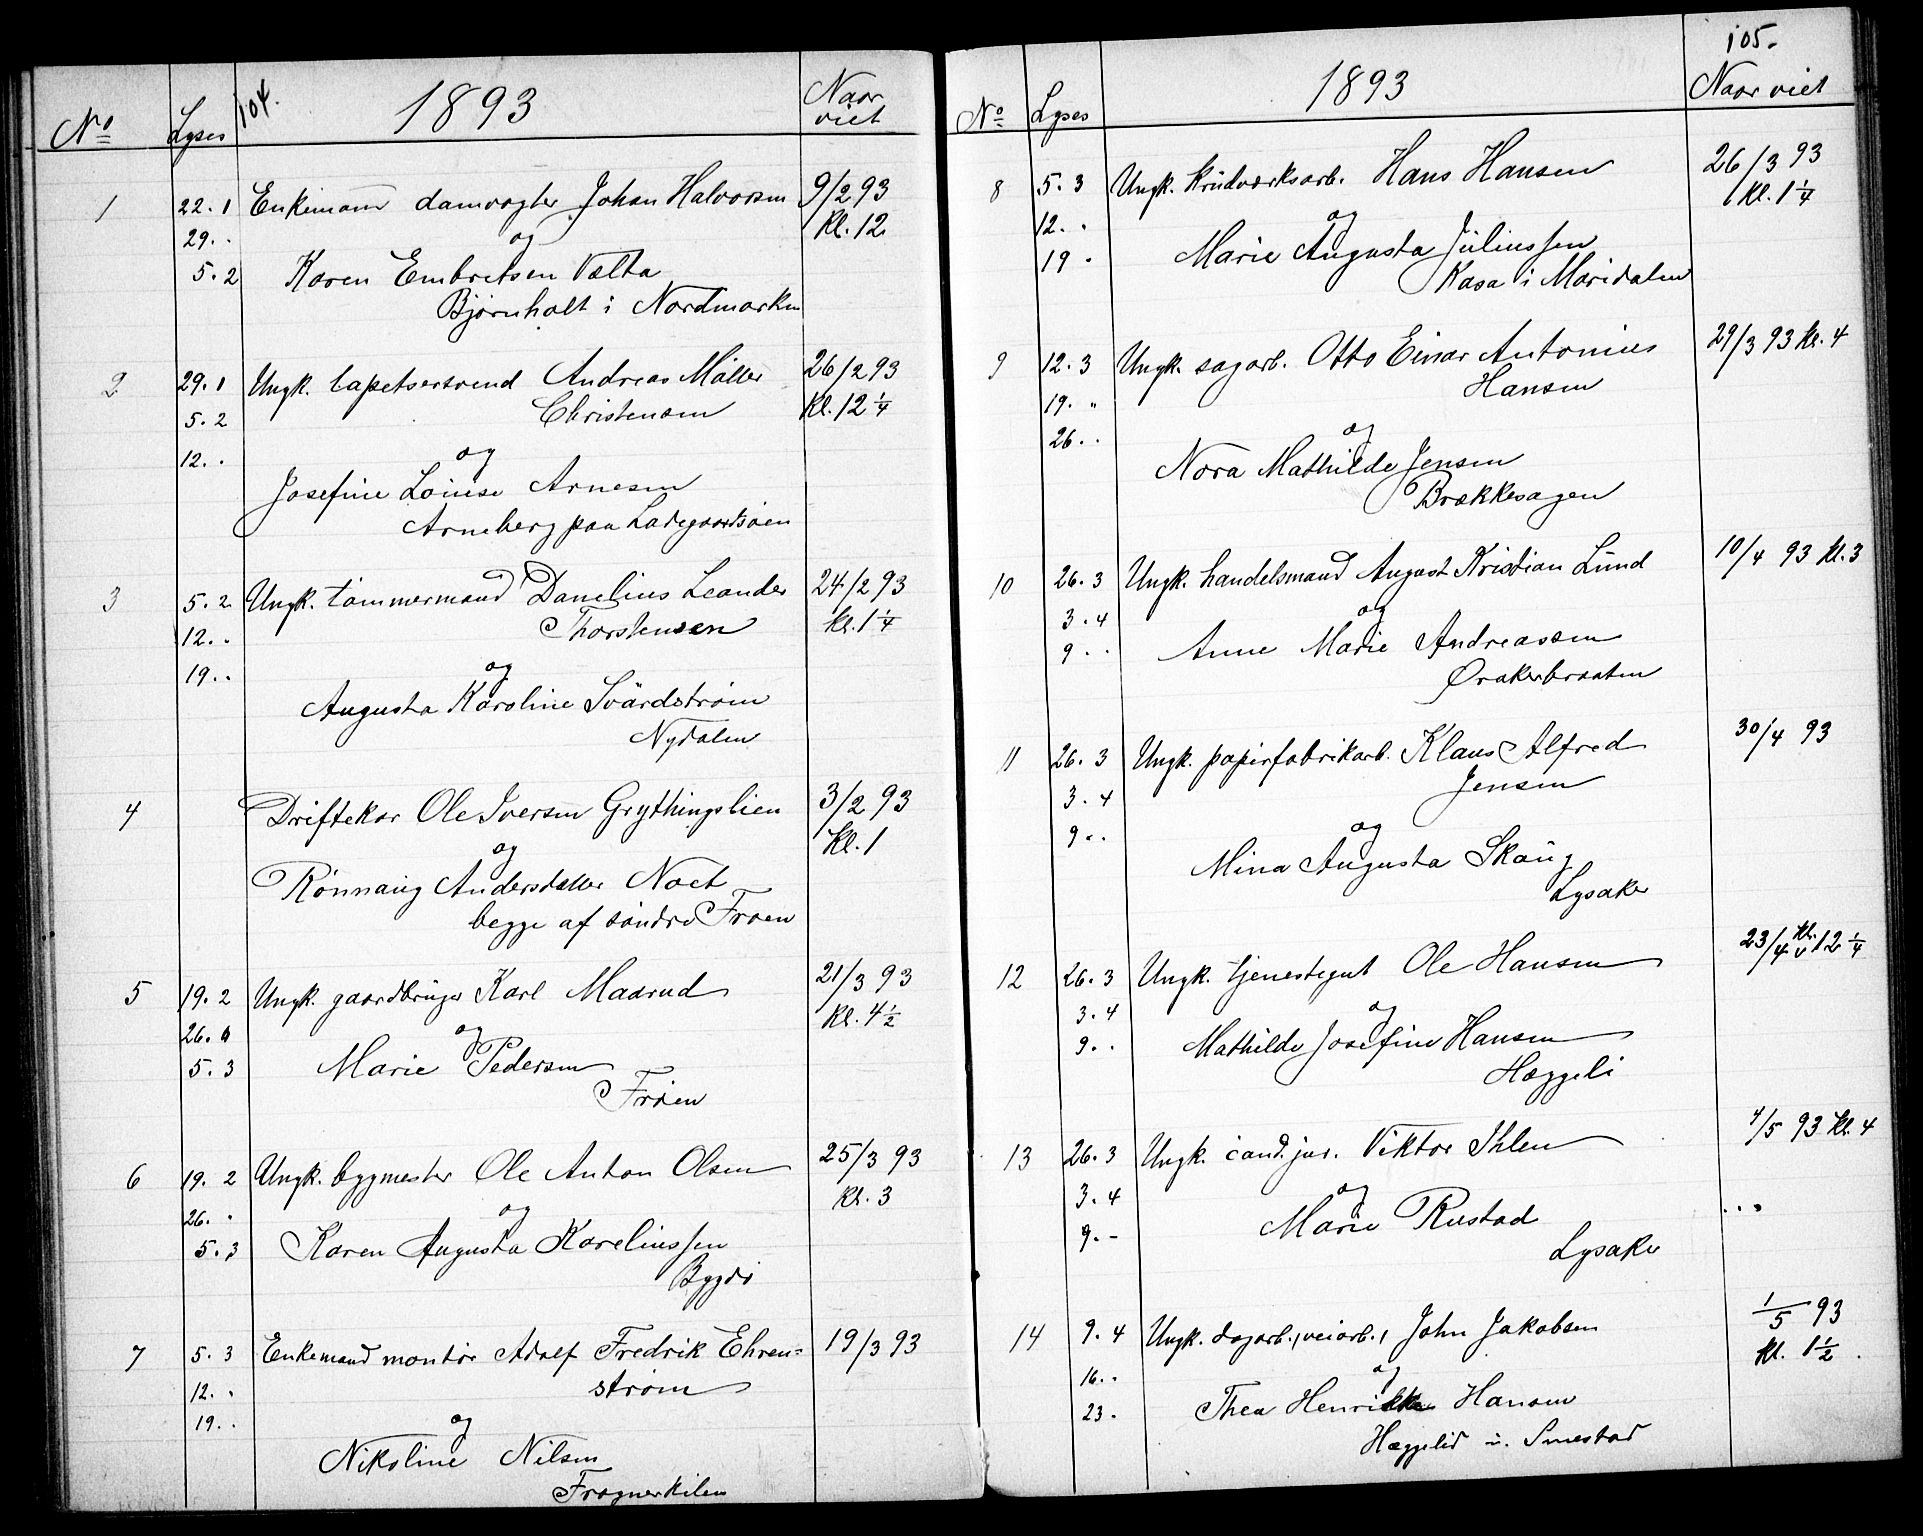 104.
1893
Naar viet
No Lyses
1 22.1 Enkemann damvogter Johan Halvorsen 9/2 93
29. . og Kl. 12
5.2 Karen Embretsen Valta
Bjørnholt i Nordmarken
2 29.1 Ungk. tapetsersvend Andreas Møller 26/2 93
5.2 Christensen Kl. 12 1/4
12. . og
Josefine Louise Arnesen
Arneberg paa Ladegaardsøen
3 5.2 Ungk. tømmermand Danelius Leander 24/2 93
12. . Thorstensen Kl. 1 1/4
19. . og
Augusta Karoline Svärdstrøm
Nydalen
4 Driftekar Ole Iversen Grythingslien 3/2 93
og Kl. 1
Rønnaug Andersdatter Noet
begge af søndre Froen
5 19.2 Ungk. gaardbruger Karl Maarud 21/3 93
26. . og Kl. 4 1/2
5.3 Marie Pedersen
Frøen
6 19.2 Ungk. bygmester Ole Anton Olsen 25/3 93
26. . og Kl. 3
5.3 Karen Augusta Karelinssen
Bygdø
7 5.3 Enkemand montør Adolf Fredrik Ehren= 19/3 93
12. . strøm
19. . og
Nikoline Nilsen
Frognerkilen
105.
1893
Naar viet
No Lyses
8 5.3 Ungk. krudværksarb. Hans Hansen 26/3 93
12. . og Kl. 1 1/4
19 . Marie Augusta Juliussen
Kasa i Maridalen
9 12.3 Ungk. sagarb. Otto Einar Antonius 29/3 93 Kl. 4
19. „ Hansen
26. . og
Nora Mathilde Jensen
Brækkesagen
10 26.3 Ungk. handelsmand August Kristian Lund 10/4 93 Kl. 3
3.4 og
9 . . Anne Marie Andreassen
Ørakerbraaten
11 26.3 Ungk. papirfabrikarb. Klaus Alfred 30/4 93
3.4 Jensen
9 . . og
Mina Augusta Skaug
Lysaker
12 26.3 Ungk. tjenestegut Ole Hansen 23/4 Kl. 12 1/4
3.4 og
9. . Mathilde Josefine Hansen
Hæggeli
13 26.3 Ungk. cand. jur. Viktor Ihlen 4/5 93 Kl. 4
3.4 og
9. – Marie Rustad
Lysaker
14 9.4 Ungk. dagarb. (veiarb.) John Jakobsen 1/5 93
16. . og Kl. 1 1/2
23 . Thea Henrikke Hansen
Hæggelid u. Smestad